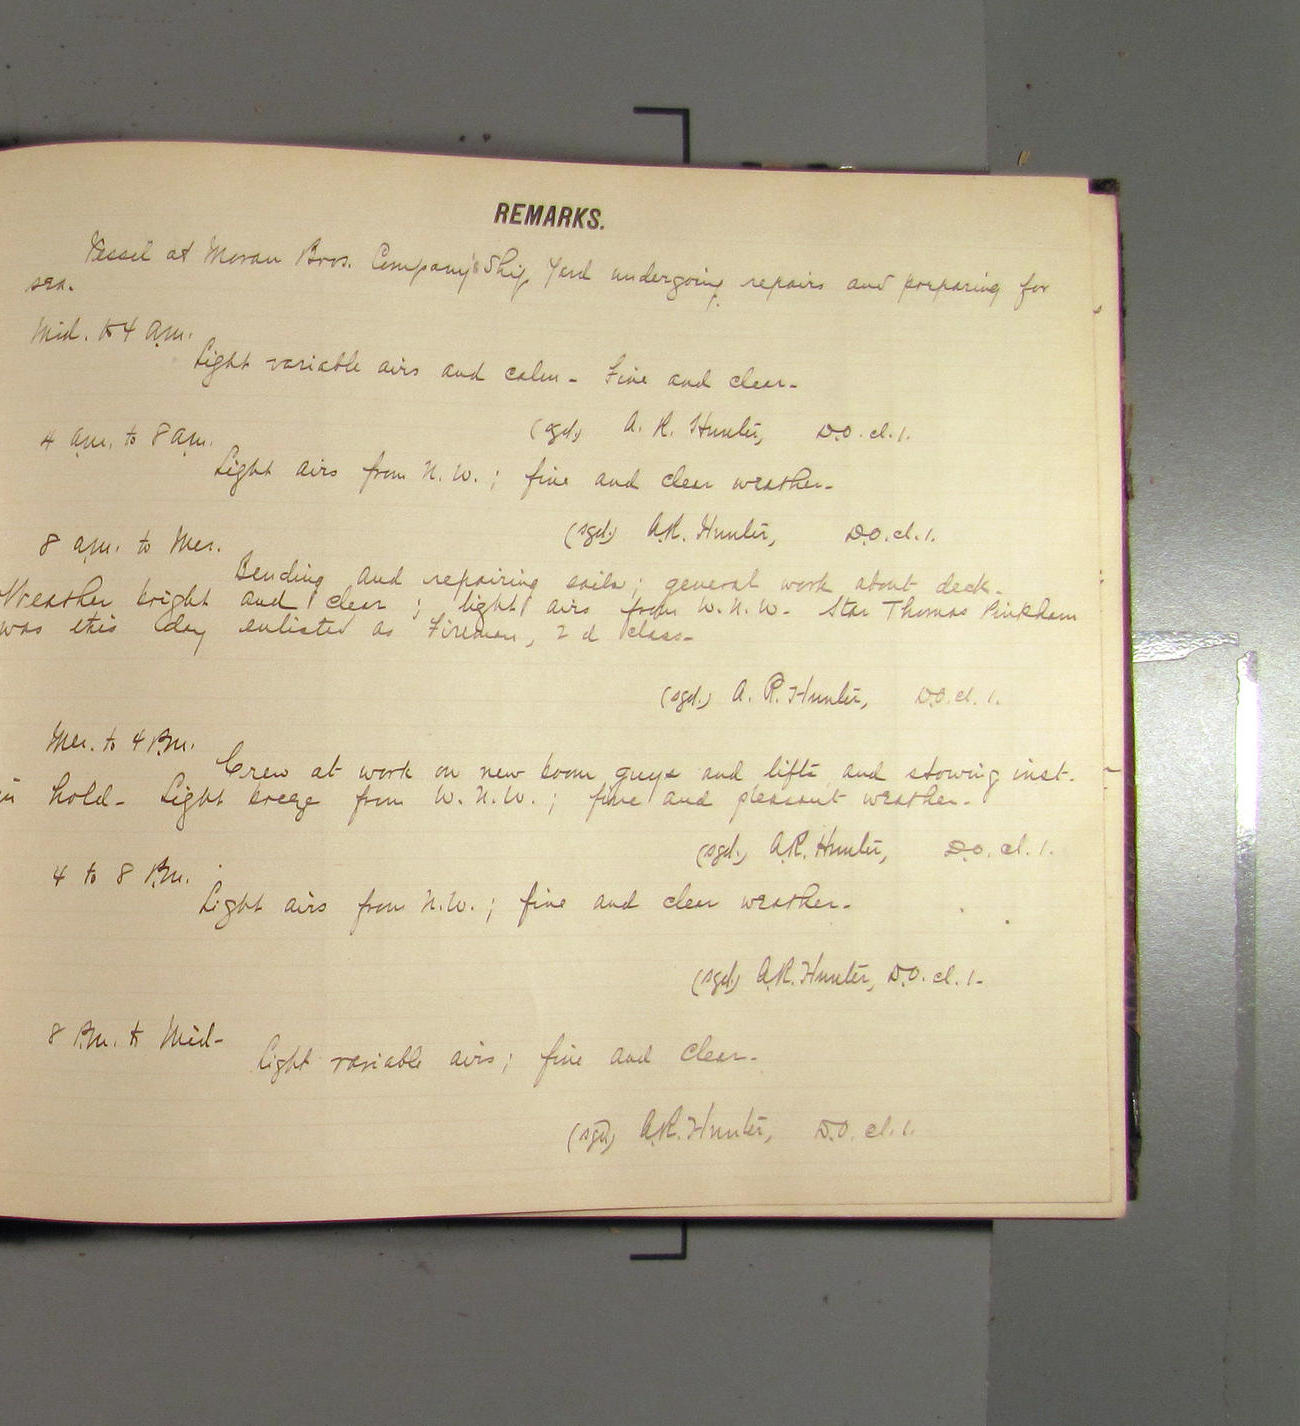 REMARKS.
Vessel at Moran Bros. Company's Ship Yard undergoing repairs and preparing for
sea.
Mid. to 4 a.m.
Light variable airs and calm - Fine and clear -
(sgd) A. R. Hunter, D.O. cl. 1.
4 a.m. to 8 a.m.
Light airs from N.W.; fine and clear weather -
(sgd.) A.R. Hunter, D.O. cl. 1.
8 a.m. to Mer.
Bending and repairing sails; general work about deck.
Weather bright and clear; light airs from W.N.W. - Thomas Pinkham
was this day enlisted as Fireman, 2d class -
(sgd.) A. R. Hunter, D.O. cl. 1.
Mer. to 4 P.M.
Crew at work on new boom guys and lifts and stowing inst.
in hold - Light breeze from W.N.W.; fine and pleasant weather -
(sgd.) A.R. Hunter, D.O. cl. 1.
4 to 8 P.M.
Light airs from N.W.; fine and clear weather -
(sgd) A.R. Hunter, D.O. cl. 1 -
8 P.M. to Mid -
Light variable airs; fine and clear -
(sgd) A.R. Hunter, D.O. cl. 1.